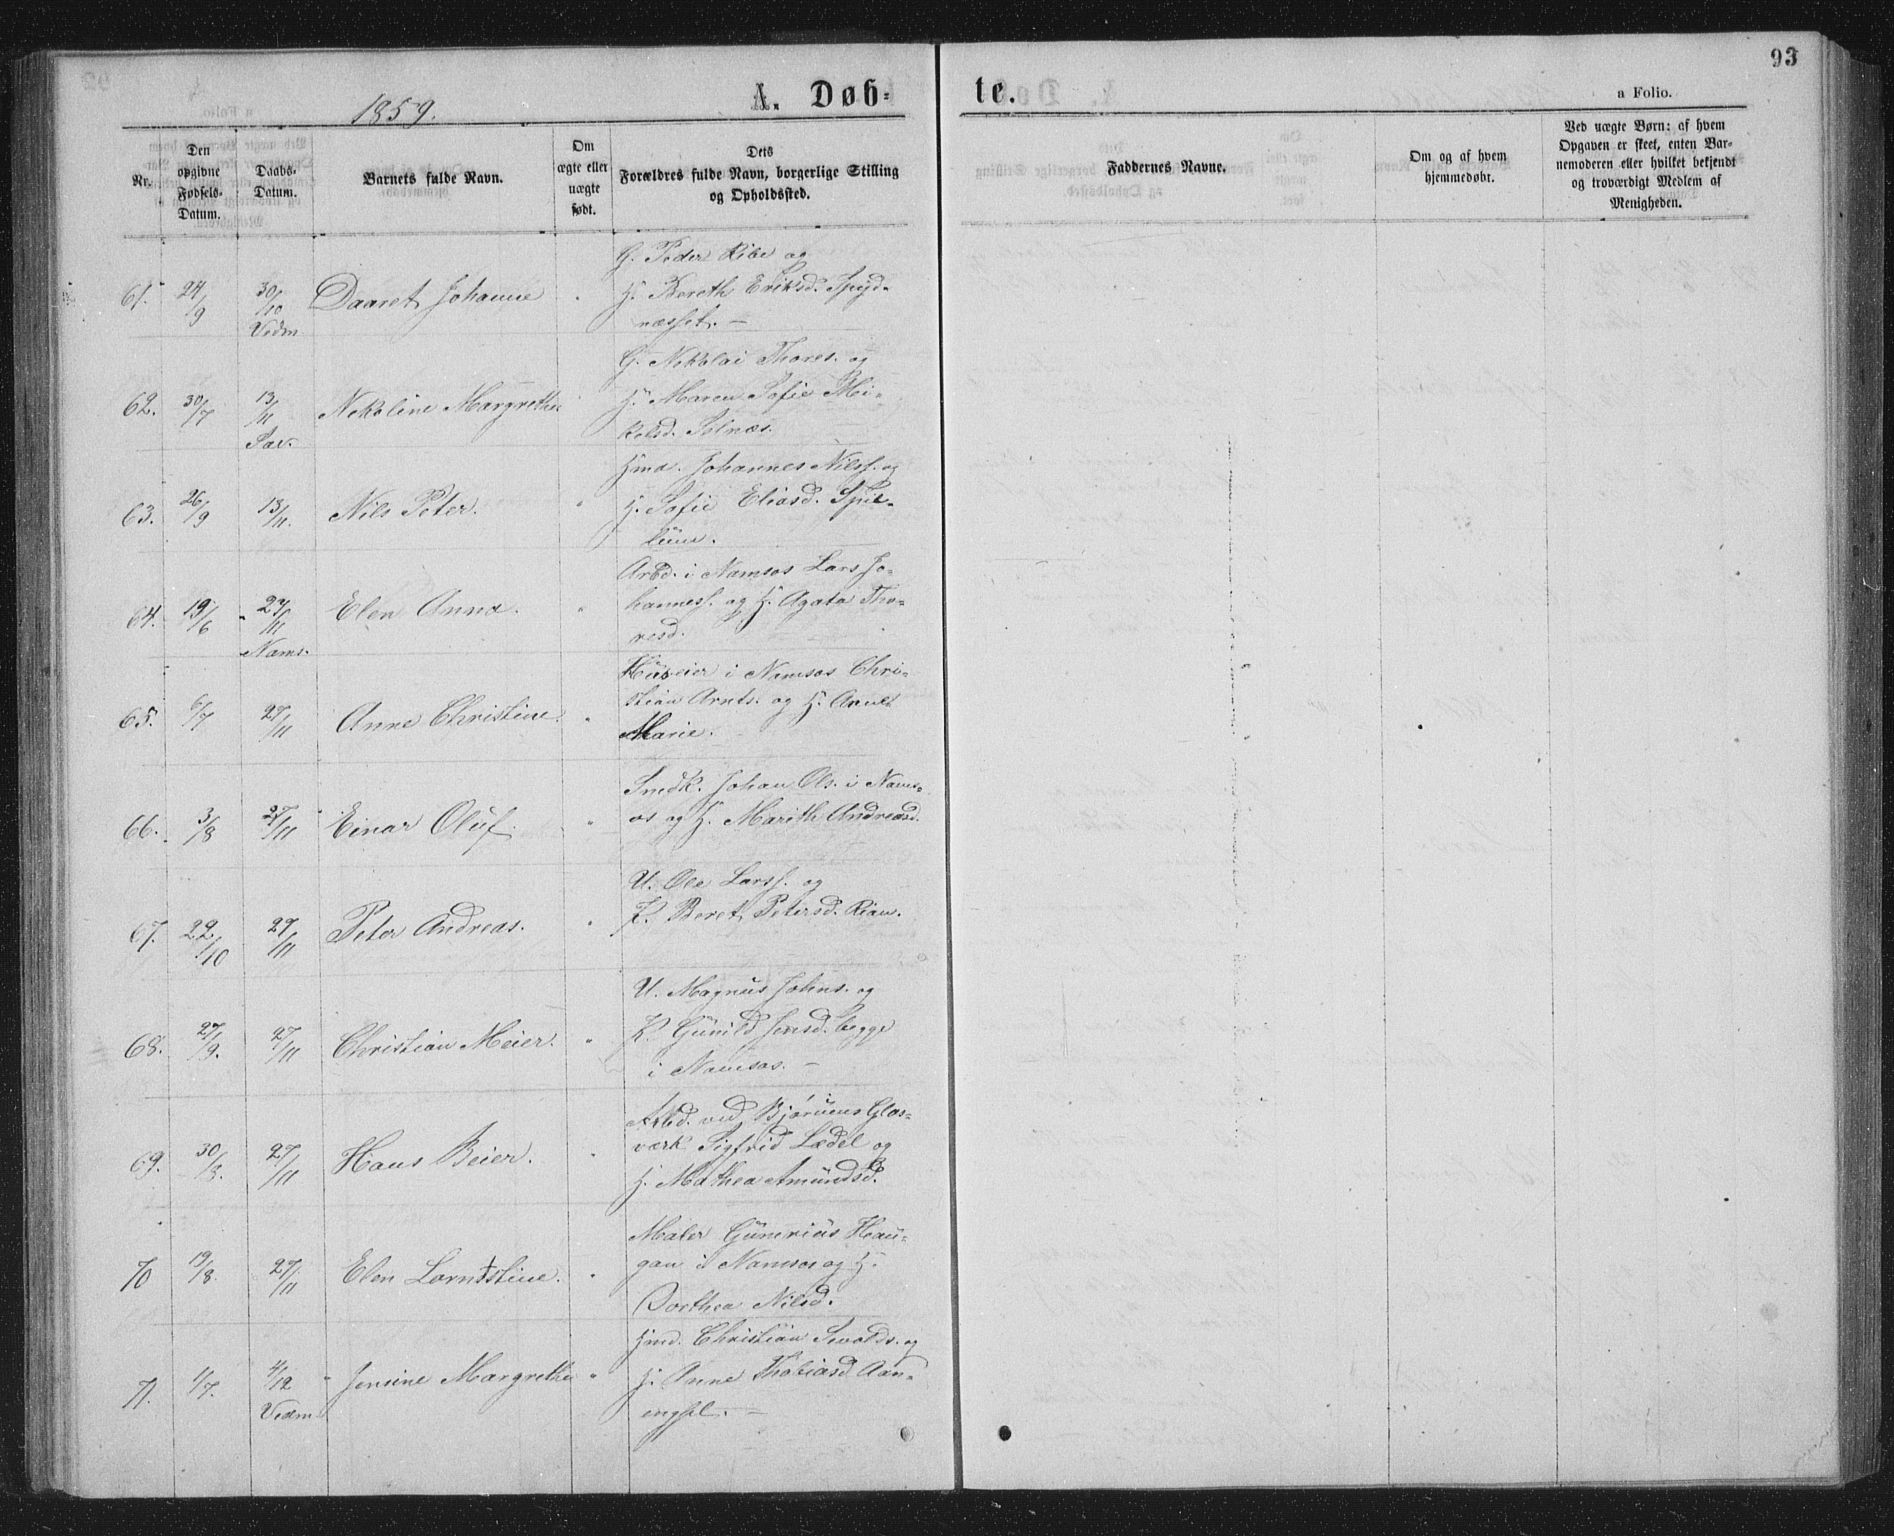 93
1859.
A. Døb-
te.
a Folio.
Nr.
Den
opgivne
Fødsels-
Datum.
Daabs-
Datum.
Barnets fulde Navn.
Om
ægte eller
uægte
født.
Dets
Forældres fulde Navn, borgerlige Stilling
og Opholdssted.
Faddernes Navne.
Om og af hvem
hjemmedøbt.
Ved uægte Børn: af hvem
Opgaven er skeet, enten Bar-
nemoderen eller hvilket bekjendt
og troværdigt Medlem af
Menigheden.
G. Peder Ribe og
61. 24/9 30/10 Daaret Johanne " H. Bereth Eriksd. Spyd-
Vedm næsset. —
G. Nikolai Thores. og
62. 30/7 13/11 Nekoline Margrethe H. Maren Sofie Mi-
Sæv. kelsd. Solnæs.
Hmd. Johannes Nilss. og
63. 26/9 13/11. Nils Peter. " H. Sofie Eliasd. Spil-
lum.
Arbd. i Namsos Lars Jo-
64. 19/6 27/11 Elen Anna. " hanness. og H. Agata Tho-
Nams. resd.
Huseier i Namsos Chri-
65. 6/7 27/11 Anne Christine. " stian Arnts. og H. Anne
Marie.
Snedk. Johan Ols. i Nams-
66. 3/8 27/11 Einar Oluf. " os og H. Marith Andreasd.
U. Ole Larss. og
67. 22/10 27/11 Peter Andreas. " P. Beret Petersd. Rian.
U. Magnus Johns. og
68. 27/9. 27/11 Christian Meier. " P. Gunild Jensd. begge
i Namsos. —
Arbd. ved Bjørums Glas-
69. 30/8. 27/11 Hans Beier. " værk Sigfrid Lædel og
H. Mathea Amundsd.
Maler Gunerius Hau-
70 19/8. 27/11 Elen Lorntstine. " gan i Namsos og H.
Dorthea Nilsd.
Hmd. Christian Sevolds. og
71. 1/7. 4/12 Jensine Margrethe " H. Anne Thobiasd Aan-
Vedm